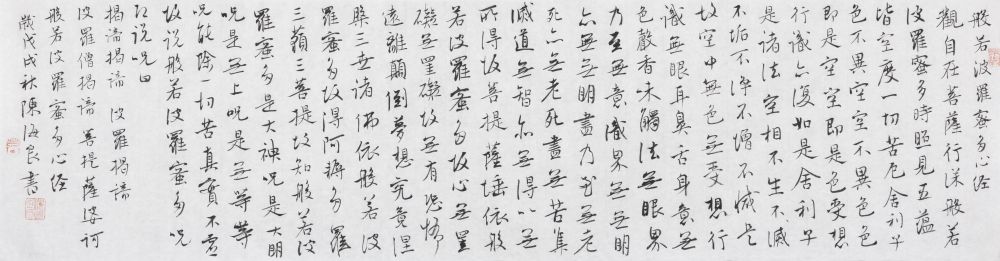 般若波羅蜜多心经
觀自在菩薩行深般若
波羅蜜多時照見五蕴
皆空度一切苦厄舍利子
色不異空空不異色色
即是空空即是色受想
行識亦復如是舍利子
是诸法空相不生不滅
不垢不净不增不减是
故空中無色無受想行
識無眼耳鼻舌身意無
色聲香味觸法無眼界
乃至無意識界無無明
亦無無明盡乃至無老
死亦無老死盡無苦集
滅道無智亦無得以無
所得故菩提薩埵依般
若波羅蜜多故心無罣
礙無罣礙故無有恐怖
遠離顛倒夢想究竟涅
槃三世诸佛依般若波
羅蜜多故得阿耨多羅
三藐三菩提故知般若波
羅蜜多是大神咒是大明
咒是無上咒是無等等
咒能除一切苦真實不虚
故说般若波羅蜜多咒
即说咒曰
揭諦揭諦 波羅揭諦
波羅僧揭諦 菩提薩婆訶
般若波羅蜜多心经
歲戊戌秋陳海良書